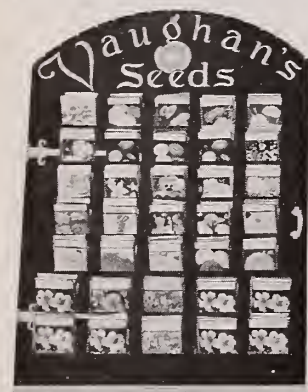 Vaughan's
Seeds